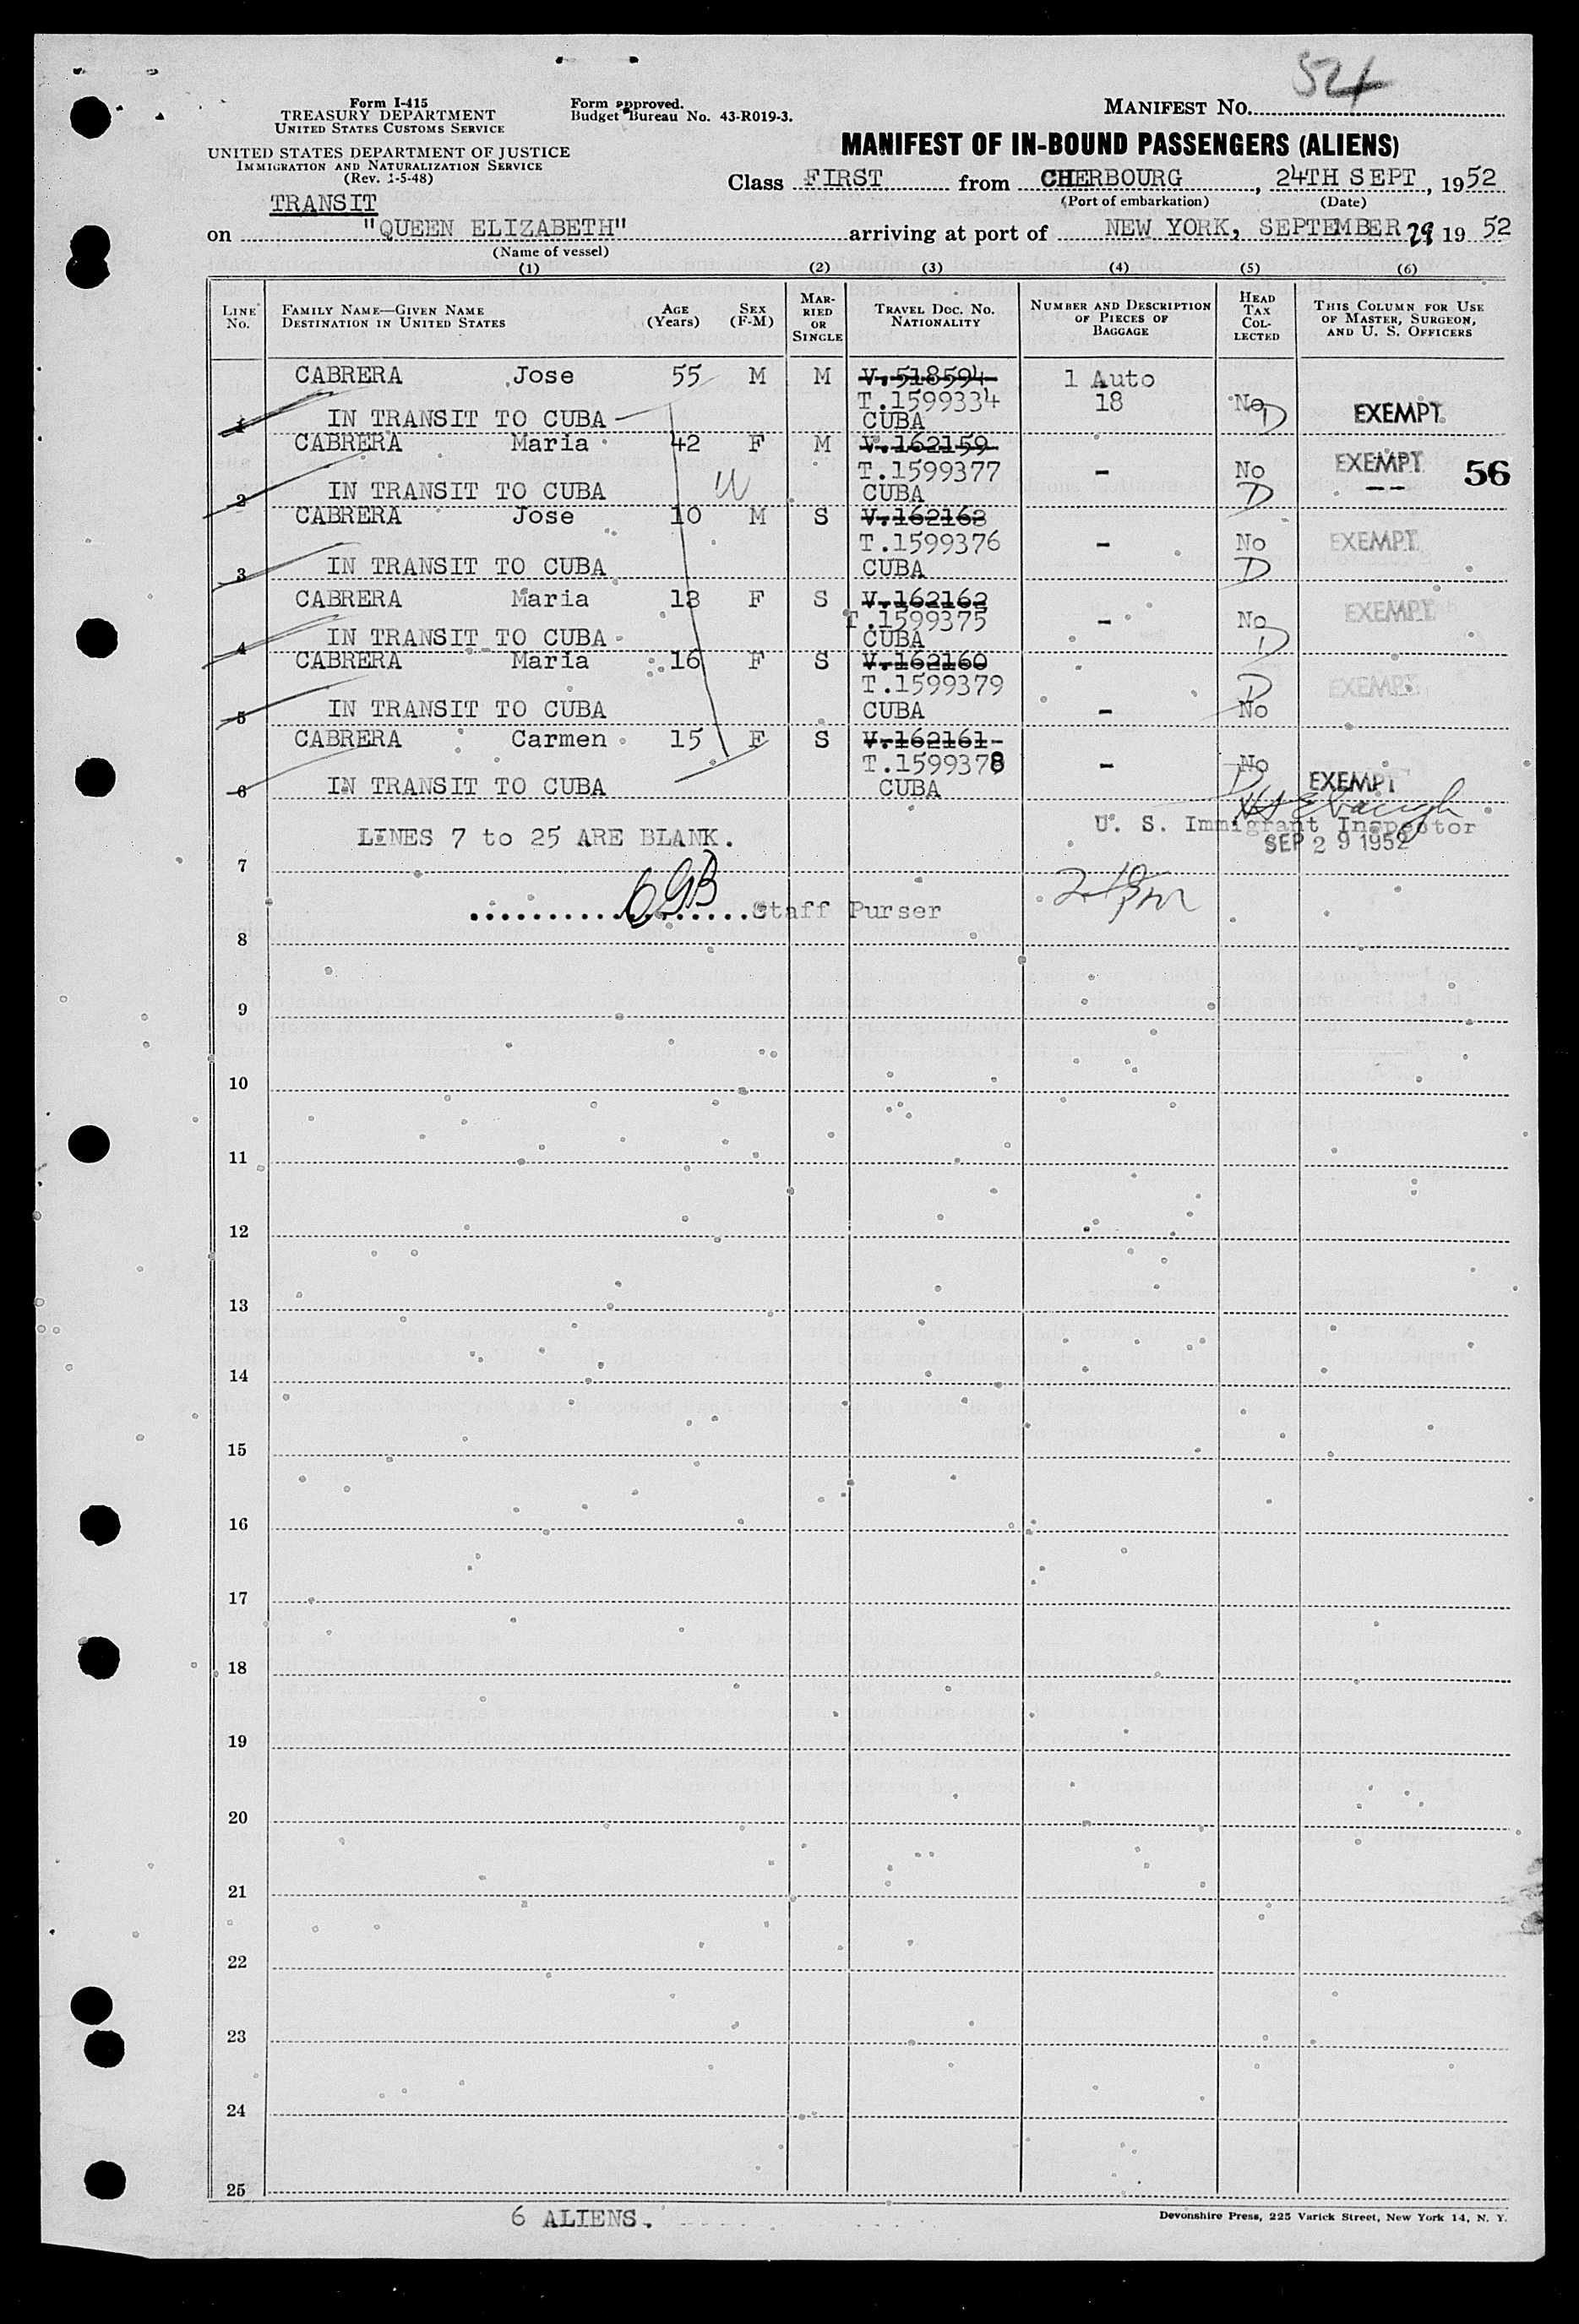 54
Form I-415
TREASURY DEPARTMENT
UNITED STATES CUSTOMS SERVICE
UNITED STATES DEPARTMENT OF JUSTICE
IMMIGRATION AND NATURALIZATION SERVICE
(Rev. 1-5-48)
Form approved.
Budget Bureau No. 43-R019-3.
MANIFEST NO.
MANIFEST OF IN-BOUND PASSENGERS (ALIENS)
Class FIRST from CHERBOURG, 24TH SEPT, 1952
(Port of embarkation) (Date)
TRANSIT
on "QUEEN ELIZABETH" arriving at port of NEW YORK, SEPTEMBER 29 1952
(Name of vessel)
(1) (2) (3) (4) (5) (6)
LINE NO. FAMILY NAME—GIVEN NAME DESTINATION IN UNITED STATES AGE (Years) SEX (F-M) MARRIED OR SINGLE TRAVEL DOC. NO. NATIONALITY NUMBER AND DESCRIPTION OF PIECES OF BAGGAGE HEAD TAX COLLECTED THIS COLUMN FOR USE OF MASTER, SURGEON, AND U. S. OFFICERS
CABRERA Jose 55 M M V.518594 1 Auto
T.1599334 18 No D EXEMPT
1 IN TRANSIT TO CUBA CUBA
CABRERA Maria 42 F M V.162159
T.1599377 - No EXEMPT 56
2 IN TRANSIT TO CUBA CUBA D --
CABRERA Jose 10 M S V.162163
T.1599376 - No EXEMPT
3 IN TRANSIT TO CUBA CUBA D
CABRERA Maria 13 F S V.162162
T.1599375 - No EXEMPT
4 IN TRANSIT TO CUBA CUBA D
CABRERA Maria 16 F S V.162160
T.1599379 D EXEMPT
5 IN TRANSIT TO CUBA CUBA - No
CABRERA Carmen 15 F S V.162161
T.1599378 - No
6 IN TRANSIT TO CUBA CUBA D EXEMPT
U. S. Immigrant Inspector
LINES 7 to 25 ARE BLANK.
SEP 29 1952
7
Staff Purser
8
9
10
11
12
13
14
15
16
17
18
19
20
21
22
23
24
25
6 ALIENS.
Devonshire Press, 225 Varick Street, New York 14, N. Y.